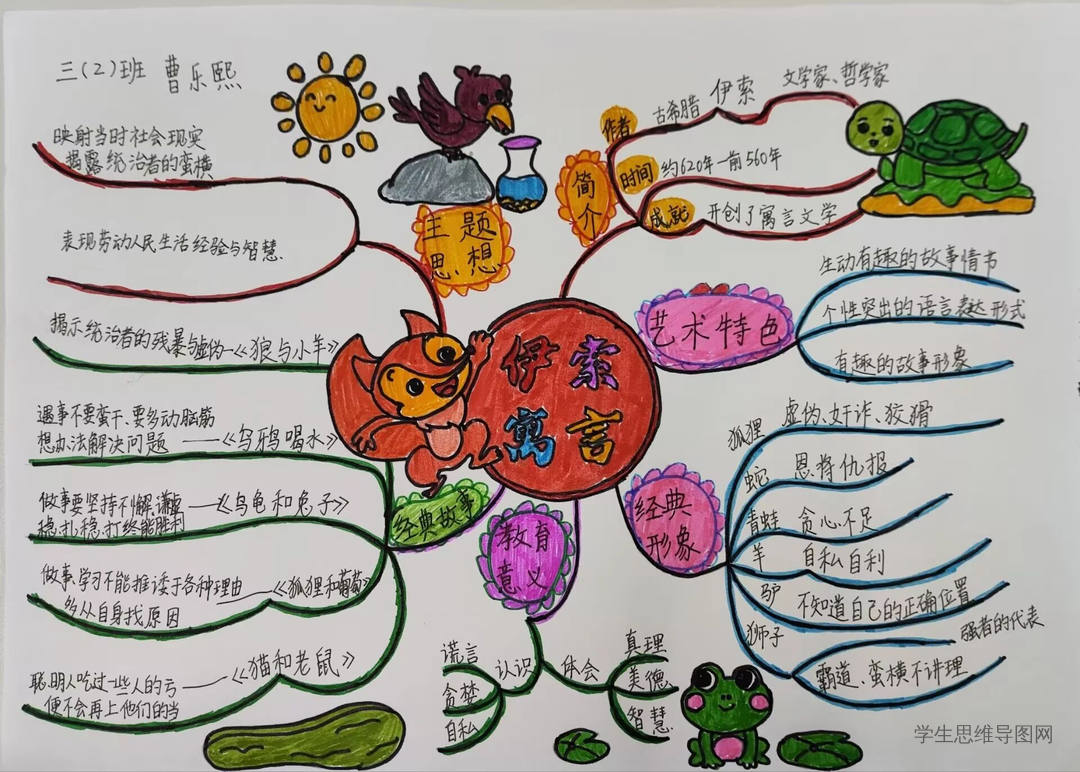 三(2)班 曹乐熙
映射当时社会现实
揭露统治者的蛮横
表现劳动人民生活经验与智慧
主题
思想
作者
古希腊 伊索
文学家、哲学家
时间
约620年-前560年
成就
开创了寓言文学
简介
艺术特色
生动有趣的故事情节
个性突出的语言表达形式
有趣的故事形象
伊索
寓言
揭示统治者的残暴与虚伪—《狼与小羊》
遇事不要蛮干、要多动脑筋
想办法解决问题 ——《乌鸦喝水》
做事要坚持不懈、谦虚
稳扎稳打终能胜利 ——《乌龟和兔子》
做事、学习不能推诿于各种理由 ——《狐狸和葡萄》
多从自身找原因
聪明人吃过一些人的亏 ——《猫和老鼠》
便不会再上他们的当
经典故事
教育
意义
认识
谎言
贪婪
自私
体会
真理
美德
智慧
经典
形象
狐狸 虚伪、奸诈、狡猾
蛇 恩将仇报
青蛙 贪心不足
羊 自私自利
驴 不知道自己的正确位置
狮子
强者的代表
霸道、蛮横不讲理
学生思维导图网